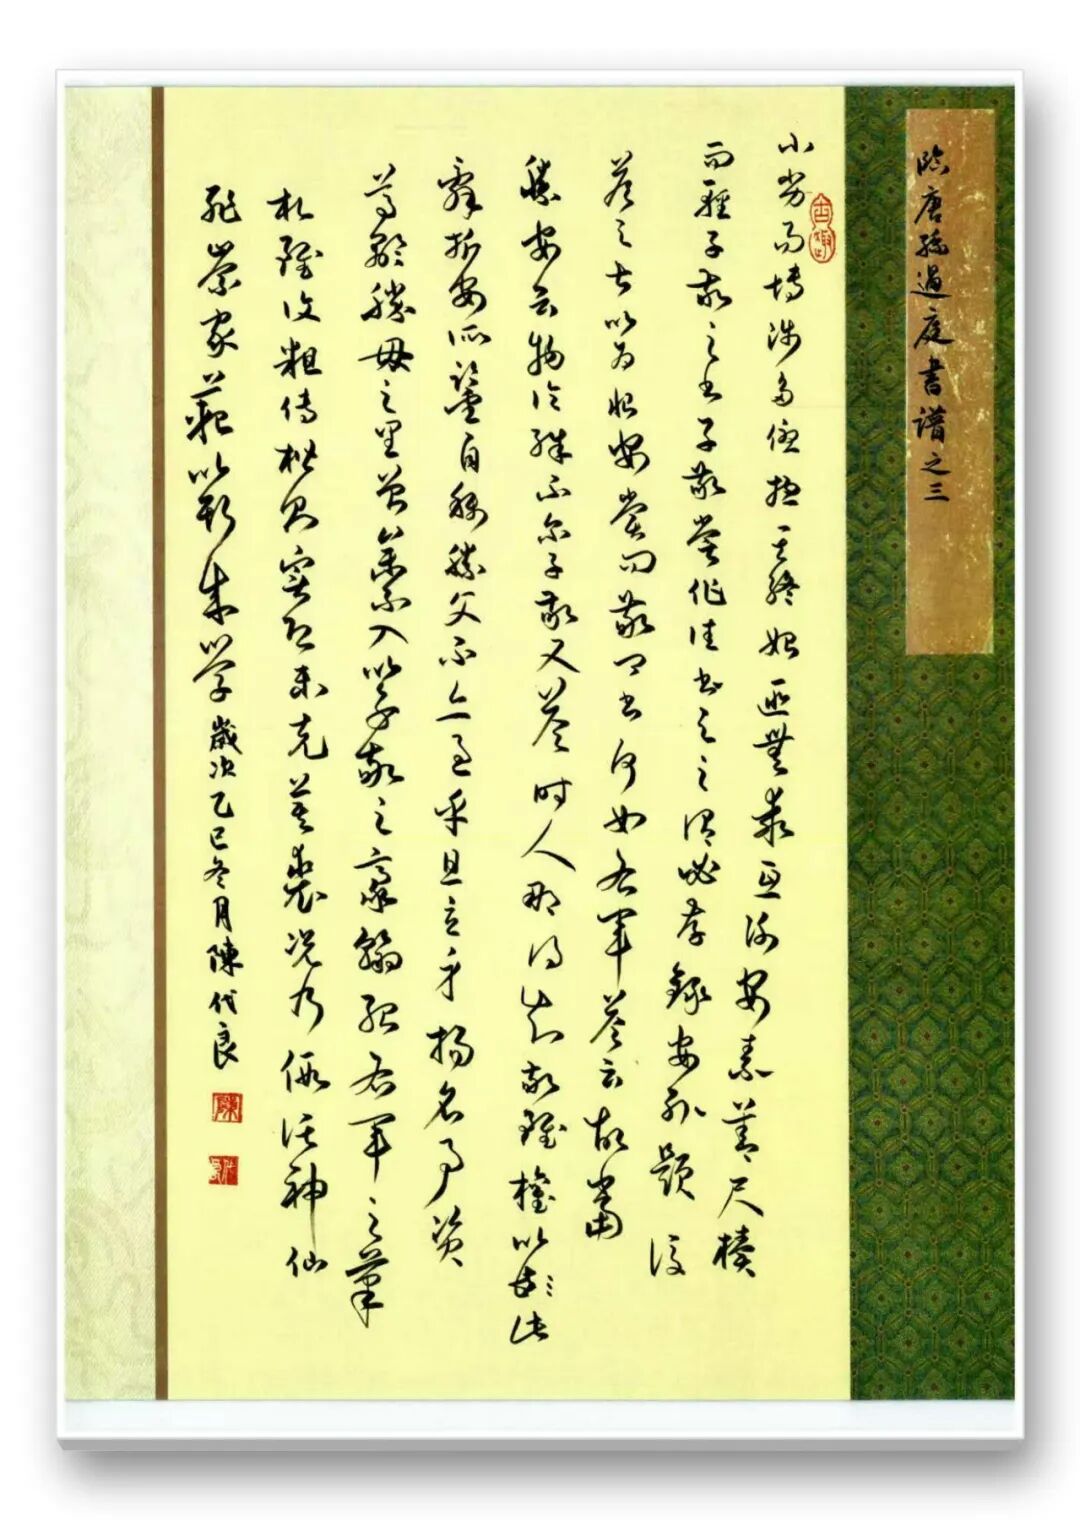 臨唐孫過庭書譜之三
古趣
小劣而博涉多優總其終始匪無乖互謝安素善尺牘
而輕子敬之書子敬嘗作佳書與之謂必存錄安輒題後
答之甚以為恨安嘗問敬卿書何如右軍答云故當
勝安云物論殊不爾子敬又答時人那得知敬雖權以此
辭折安所鑒自稱勝父不亦過乎且立身揚名事資
尊顯勝母之里曾參不入以子敬之豪翰紹右軍之筆
札雖復粗傳楷則實恐未克箕裘況乃假託神仙
恥崇家範以斯成學歲次乙巳冬月陳代良
陳